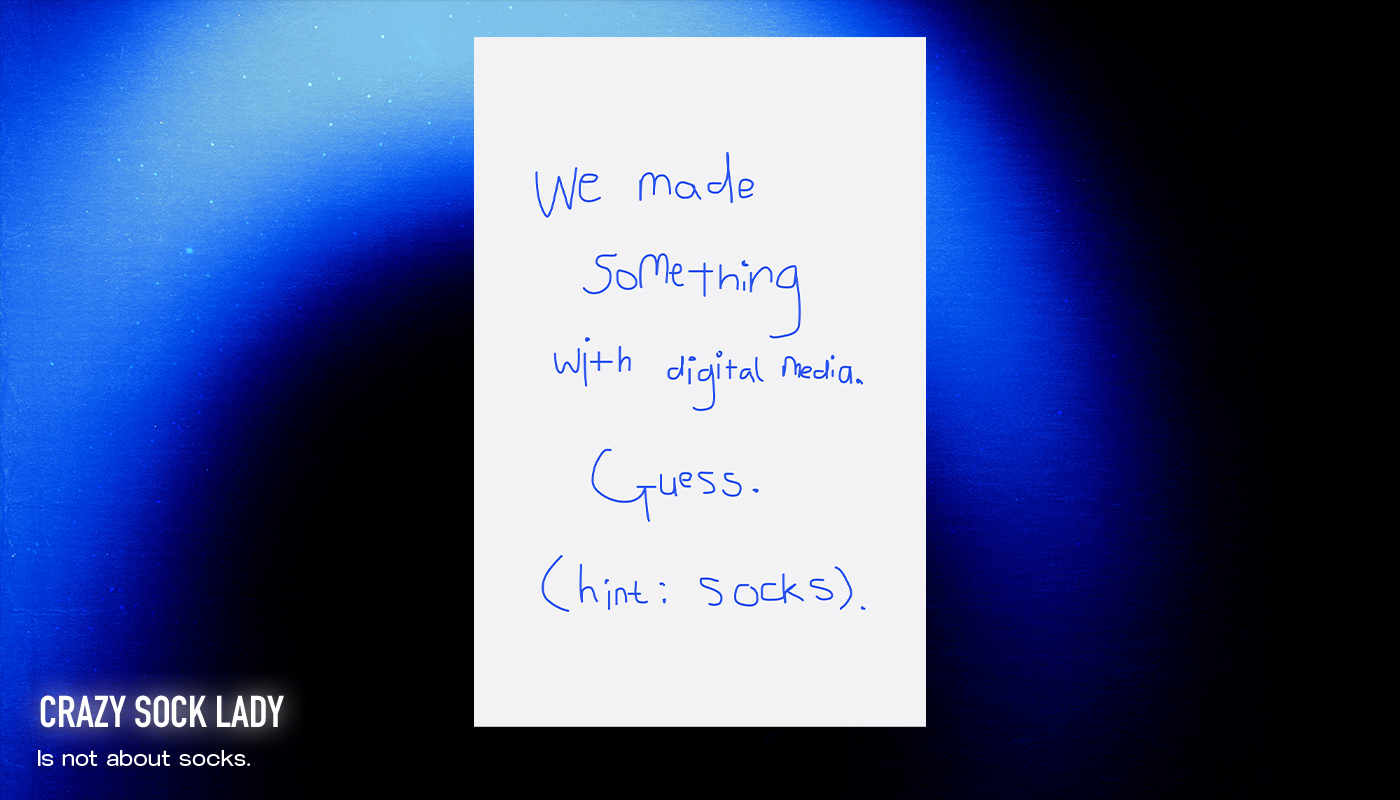 We made
something
with digital media.
Guess.
(hint: socks).
CRAZY SOCK LADY
Is not about socks.